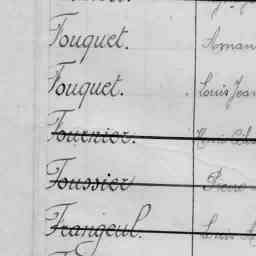 Fouquet.
Fouquet. Louis Jean
Fournier.
Foussier Pierre
Frangeul. Louis